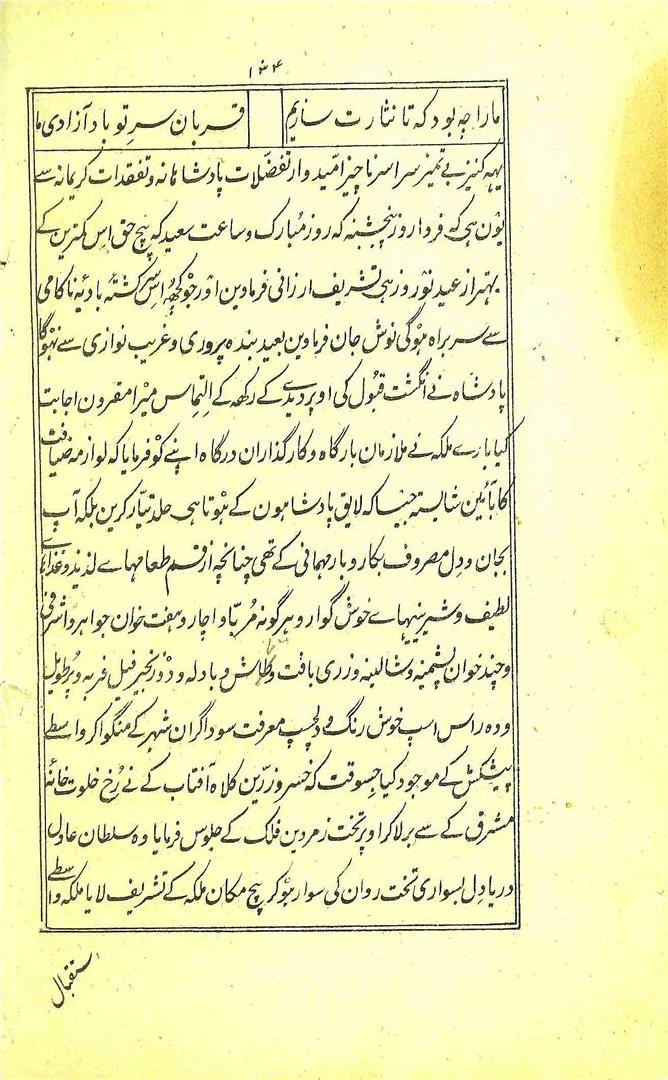 ۱۳۴
مارا چہ بود کہ تا نثارت سازیم قربان سر تو باد آزادی ما
یہہ کنیز بے تمیز سراسر ناچیز امیدوار تفضلات پادشاہانہ و تفقدات کریمانہ سے
یون ہی کہ فردا روز پنجشنبہ کہ روز مبارک و ساعت سعید کہ بیچ حق اس کمترین کے
بہتر از عید نوروز ہی تشریف ارزانی فرماوین اور جو کچھہ اس گشتۂ بادیۂ ناکامی
سے سربراہ ہوگی نوش جان فرماوین بعید بندہ پروری و غریب نوازی سے نہوگا
پادشاہ نے انگشت قبول کی اوپر دیدے کے رکھہ کے التماس میرا مقرون اجابت
کیا بارے ملکہ نے ملازمان بارگاہ و کارگذاران درگاہ اپنے کو فرمایا کہ لوازمہ ضیافت
کا بآئین شایستہ جیسا کہ لایق پادشاہون کے ہوتا ہی جلد تیار کرین بلکہ آپ
بجان و دل مصروف بکاروبار مہمانی کے تھی چنانچہ از قسم طعامہاے لذیذ و غذاہاے
لطیف و شیرینیہاے خوش گوار و ہرگونہ مربا و اچار و ہفت خوان جواہر و اشرفی
و چند خوان پشمینہ و شالینہ و زری بافت و طاش و بادلہ و دو زنجیر فیل غربہ و پر طویل
و دہ راس اسپ خوش رنگ و دلچسپ معرفت سوداگران شہر کے منگوا کر واسطے
پیشکش کے موجود کیا جسوقت کہ خسرو زرین کلاہ آفتاب کے نے رخ خلوت خانۂ
مشرق کے سے برلا کر اوپر تخت زمردین فلک کے جلوس فرمایا وہ سلطان عادل
دریا دل بسواری تخت روان کی سوار ہو کر بیچ مکان ملکہ کے تشریف لایا ملکہ واسطے
استقبال